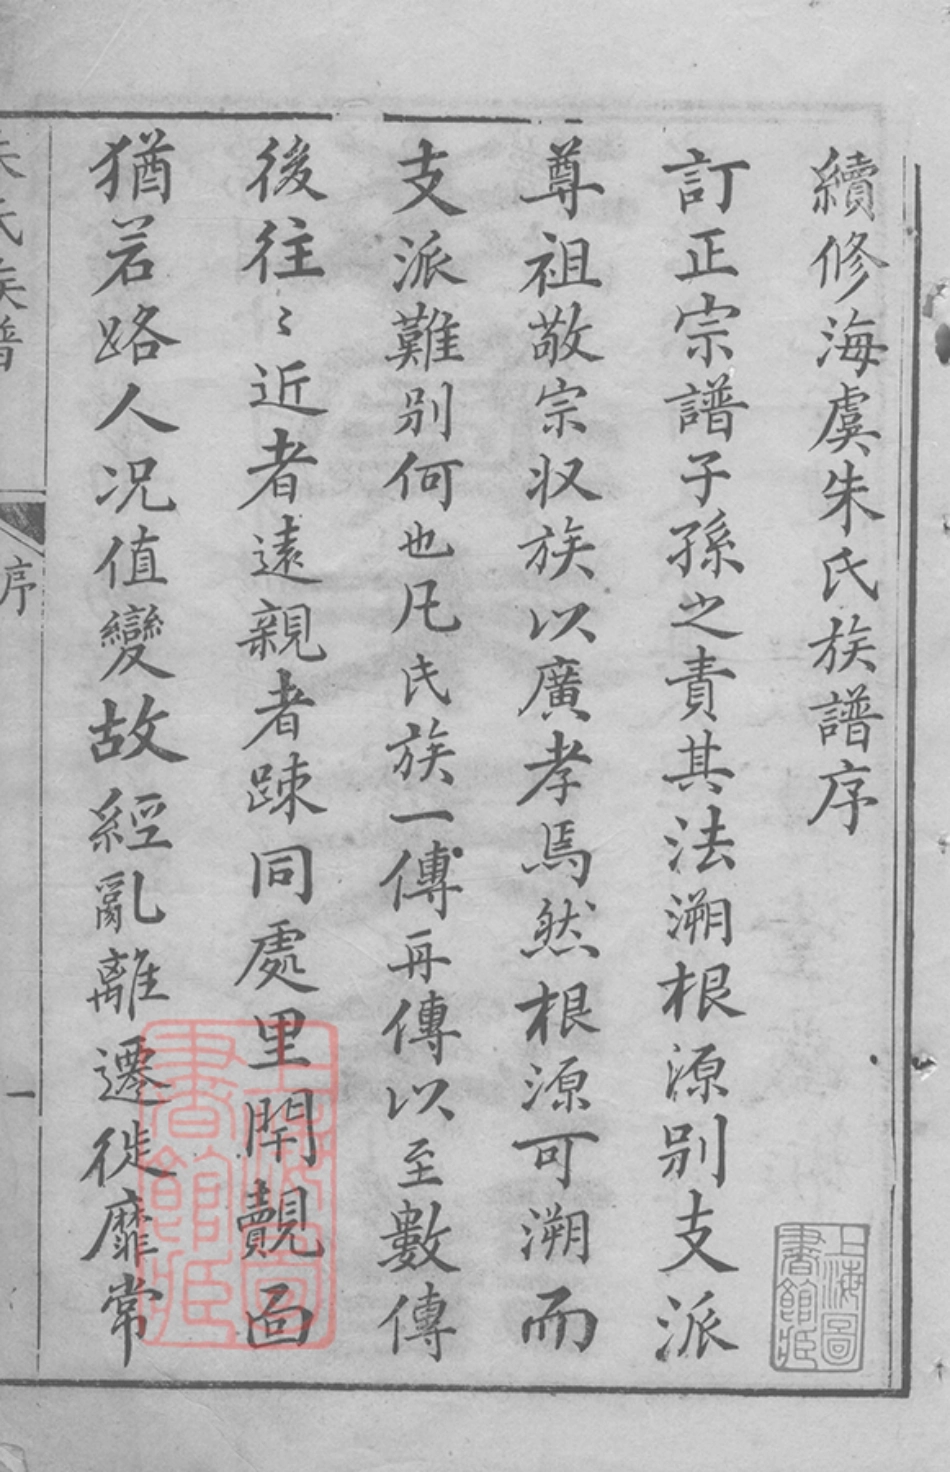 續修海虞朱氏族譜序
訂正宗譜子孫之責其法溯根源別支派
尊祖敬宗収族以廣孝焉然根源可溯而
支派難別何也凡氏族一傳再傳以至數傳
後往〻近者遠親者踈同處里閈覿面
猶若路人况值變故經亂離遷徙靡常
朱氏族譜
序
一
上海圖書館藏
上海圖書館藏